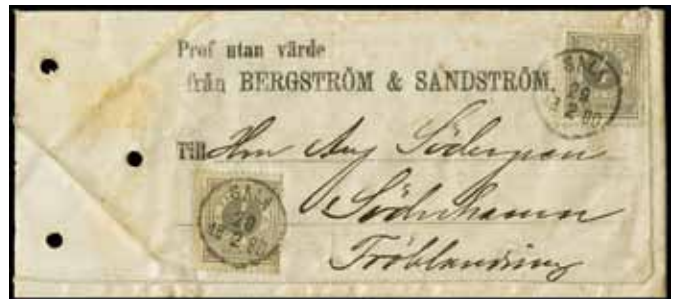 Prof utan värde
från BERGSTRÖM & SANDSTRÖM.
SALA
29
18 2 80
Till Herr Aug Södergren
Söderhamn
Fröblandning
SALA
29
18 2 80